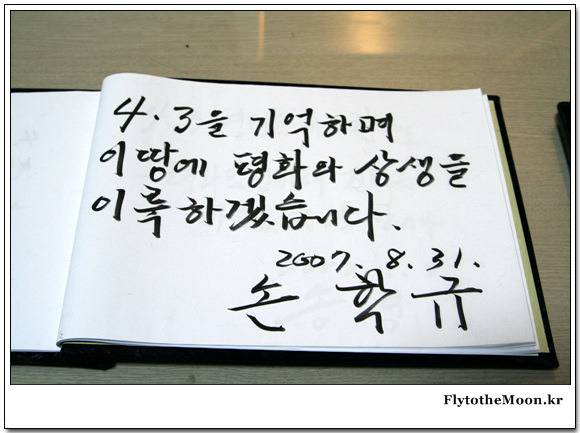 4.3을 기억하며
이 땅에 평화와 상생을
이룩하겠습니다.
2007. 8. 31.
손 학 규
FlytotheMoon.kr